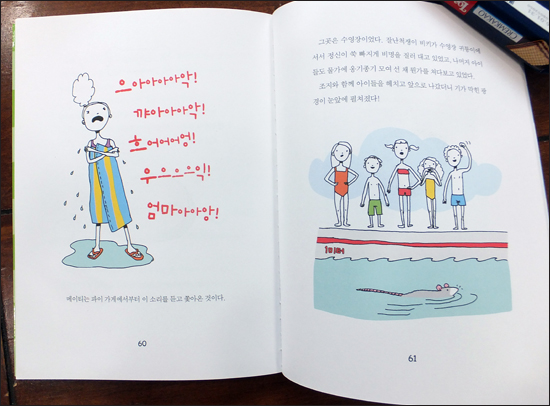 으아아아아악!
꺄아아아악!
흐어어어엉!
우으으으윽!
엄마아아앙!
에이다는 파이 가게에서부터 이 소리를 듣고 쫓아온 것이다.
60
그곳은 수영장이었다. 장난꾸러기 비키가 수영장
서서 정신이 쏙 빠지게 비명을 질러 대고 있었고, 나머지 아이
들도 물가에 옹기종기 모여 선 채 뭔가를 쳐다보고 있었다.
조지와 함께 아이들을 헤치고 앞으로 나갔더니 기가 막힌 광
경이 눈앞에 펼쳐졌다!
61